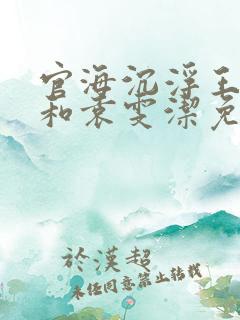 官海沉浮王
和袁雯潔免
於漢超
未经同意禁止转载